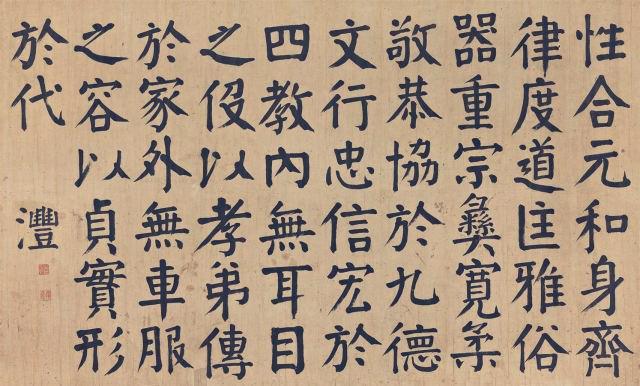 性合元和身齊
律度道匡雅俗
器重宗彝寬柔
敬恭協於九德
文行忠信宏於
四教內無耳目
之伇以孝弟傳
於家外無車服
之容以貞實形
於代
灃